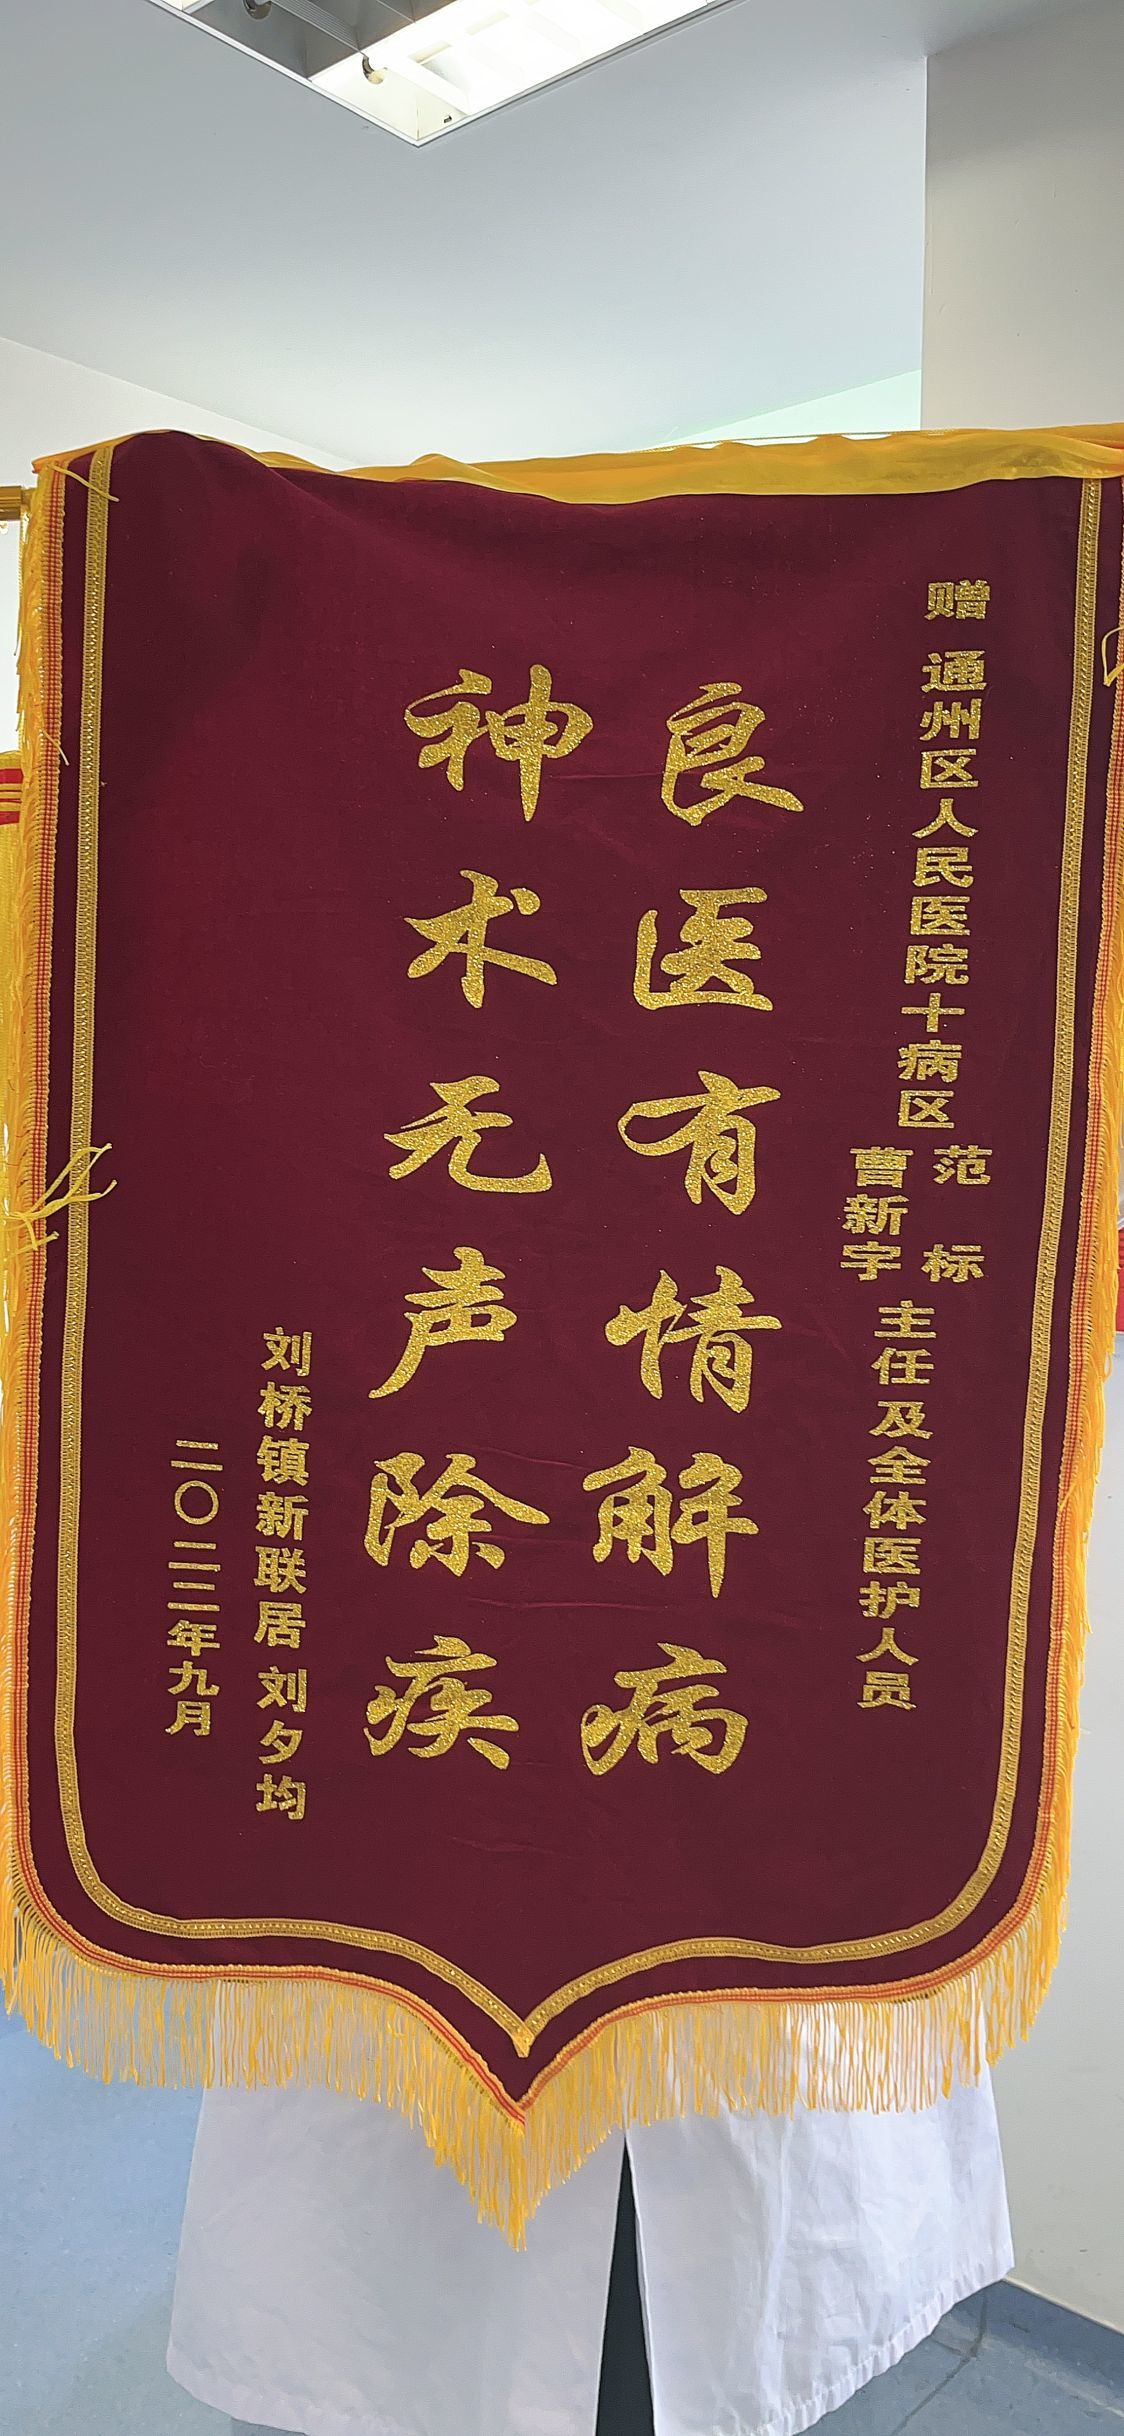 赠 通州区人民医院十病区
范标
曹新宇
主任及全体医护人员
良医有情解病
神术无声除疾
刘桥镇新联居 刘夕均
二〇二二年九月